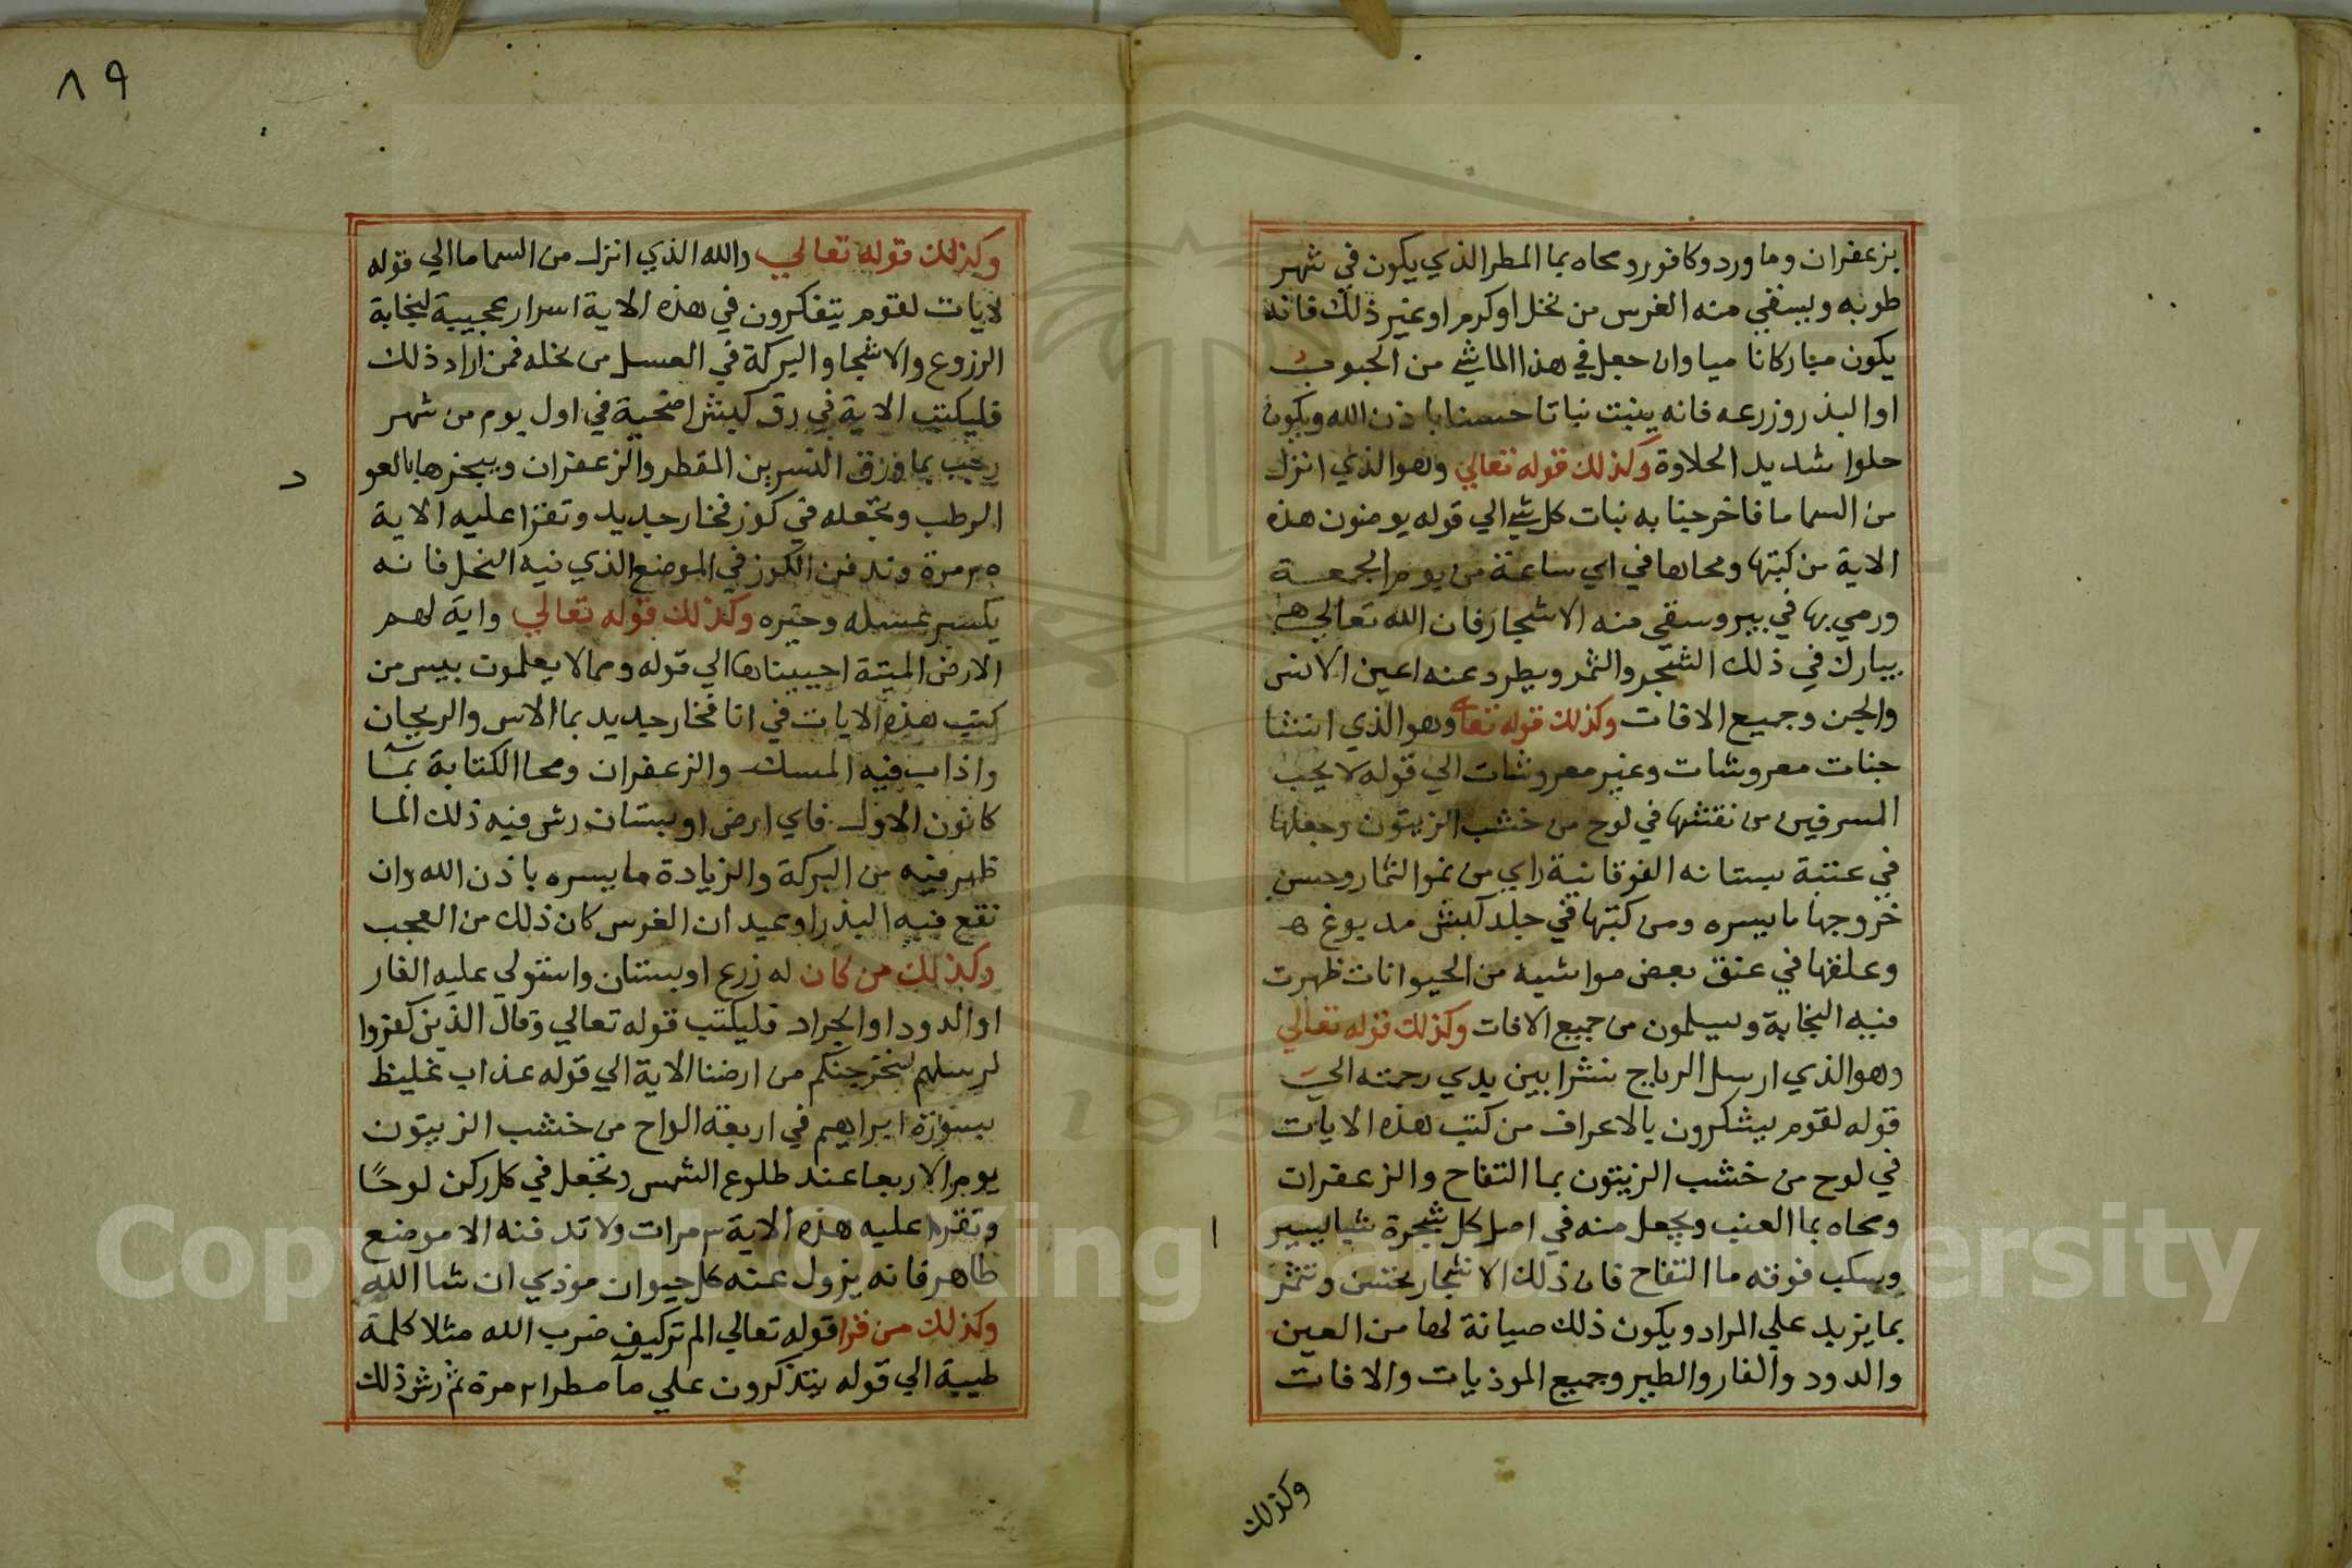 بزعفران وما ورد وكافور ومحاه بما المطر الذي يكون في شهر
طوبه ويسقي منه الغرس من نخل او كرم او غير ذلك فانه
يكون مباركا ناميا وان جعل في هذا الما شي من الحبوب
او البذر وزرعه فانه ينبت نباتا حسنا باذن الله ويكون
حلوا شديد الحلاوة وكذلك قوله تعالي وهو الذي انزل
من السما ما فاخرجنا به نبات كل شي الي قوله يومنون هذه
الاية من كتبها ومحاها في اي ساعة من يوم الجمعة
ورمي بها في بير وسقي منه الاشجار فان الله تعالي
يبارك في ذلك الشجر والثمر ويطرد عنه اعين الانس
والجن وجميع الافات وكذلك قوله تعا وهو الذي انشا
جنات معروشات وغير معروشات الي قوله لا يحب
المسرفين من نقشها في لوح من خشب الزيتون وجعلها
في عتبة بستانه الفوقانية راي من نمو الثمار وحسن
خروجها ما يسره ومن كتبها في جلد كبش مدبوغ
وعلقها في عنق بعض مواشيه من الحيوانات ظهرت
فيه النجابة ويسلمون من جميع الافات وكذلك قوله تعالي
وهو الذي ارسل الرياح بشرا بين يدي رحمته الي
قوله لقوم يشكرون بالاعراف من كتب هذه الايات
في لوح من خشب الزيتون بما التفاح والزعفران
ومحاه بما العنب ويجعل منه في اصل كل شجرة شيا يسير
ا
ويسكب فوقه ما التفاح فان ذلك الاشجار تحسن وتثمر
بما يزيد علي المراد ويكون ذلك صيانة لها من العين
والدود والفار والطير وجميع الموذيات والافات
وكذلك
٨٩
وكذلك قوله تعالي والله الذي انزل من السما ما الي قوله
لايات لقوم يتفكرون في هذه الاية اسرار عجيبة لنجابة
الزروع والاشجار والبركة في العسل من نخله فمن اراد ذلك
فليكتب الاية في رق كبش اضحية في اول يوم من شهر
رجب بما ورق النسرين المقطر والزعفران ويبخرها بالعو
د
الرطب وتجعله في كوز فخار جديد وتقرا عليه الاية
مرة وتدفن الكوز في الموضع الذي فيه النحل فانه
يكسر عسله وخيره وكذلك قوله تعالي واية لهم
الارض الميتة احييناها الي قوله ومما لا يعلمون بيس من
كتب هذه الايات في انا فخار جديد بما الاس والريحان
واذاب فيه المسك والزعفران ومحا الكتابة بما
كانون الاول فاي ارض او بستان رش فيه ذلك الما
ظهر فيه من البركة والزيادة ما يسره باذن الله وان
نقع فيه البذر او عيدان الغرس كان ذلك من العجب
وكذلك من كان له زرع او بستان واستولي عليه الفار
او الدود او الجراد فليكتب قوله تعالي وقال الذين كفروا
لرسلهم لنخرجنكم من ارضنا الاية الي قوله عذاب غليظ
بسورة ابراهيم في اربعة الواح من خشب الزيتون
يوم الاربعا عند طلوع الشمس وتجعل في كل ركن لوحًا
وتقرا عليه هذه الاية ٣ مرات ولا تدفنه الا موضع
طاهر فانه يزول عنه كل حيوان موذي ان شا الله
وكذلك من قرا قوله تعالي الم تر كيف ضرب الله مثلا كلمة
طيبة الي قوله يتذكرون علي مآ مطر ٢١ مرة ثم رش ذلك
Copyright © King Saud University